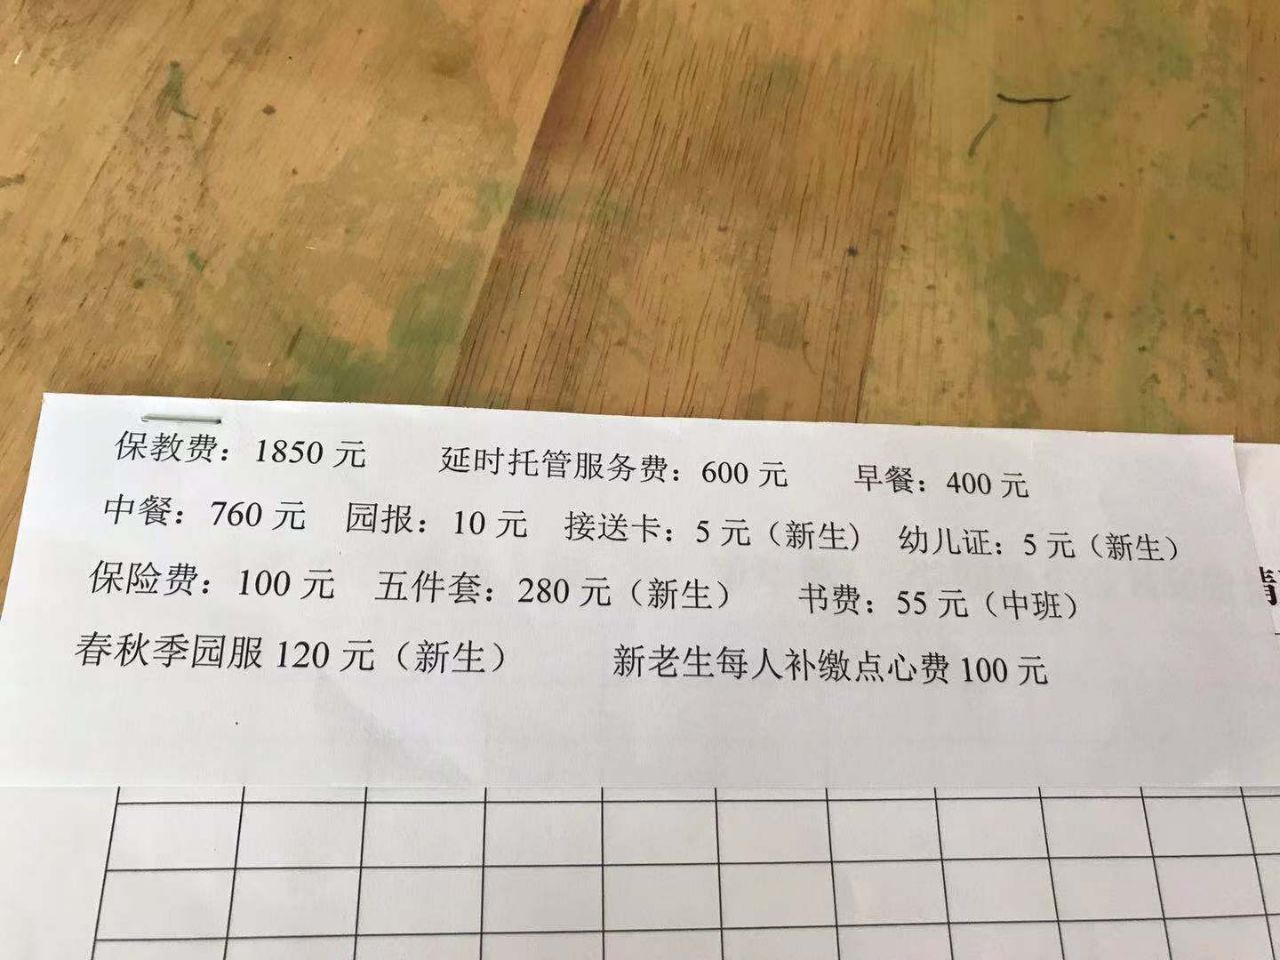 保教费：1850 元 延时托管服务费：600 元 早餐：400 元
中餐：760 元 园报：10 元 接送卡：5 元（新生） 幼儿证：5 元（新生）
保险费：100 元 五件套：280 元（新生） 书费：55 元（中班）
春秋季园服 120 元（新生） 新老生每人补缴点心费 100 元